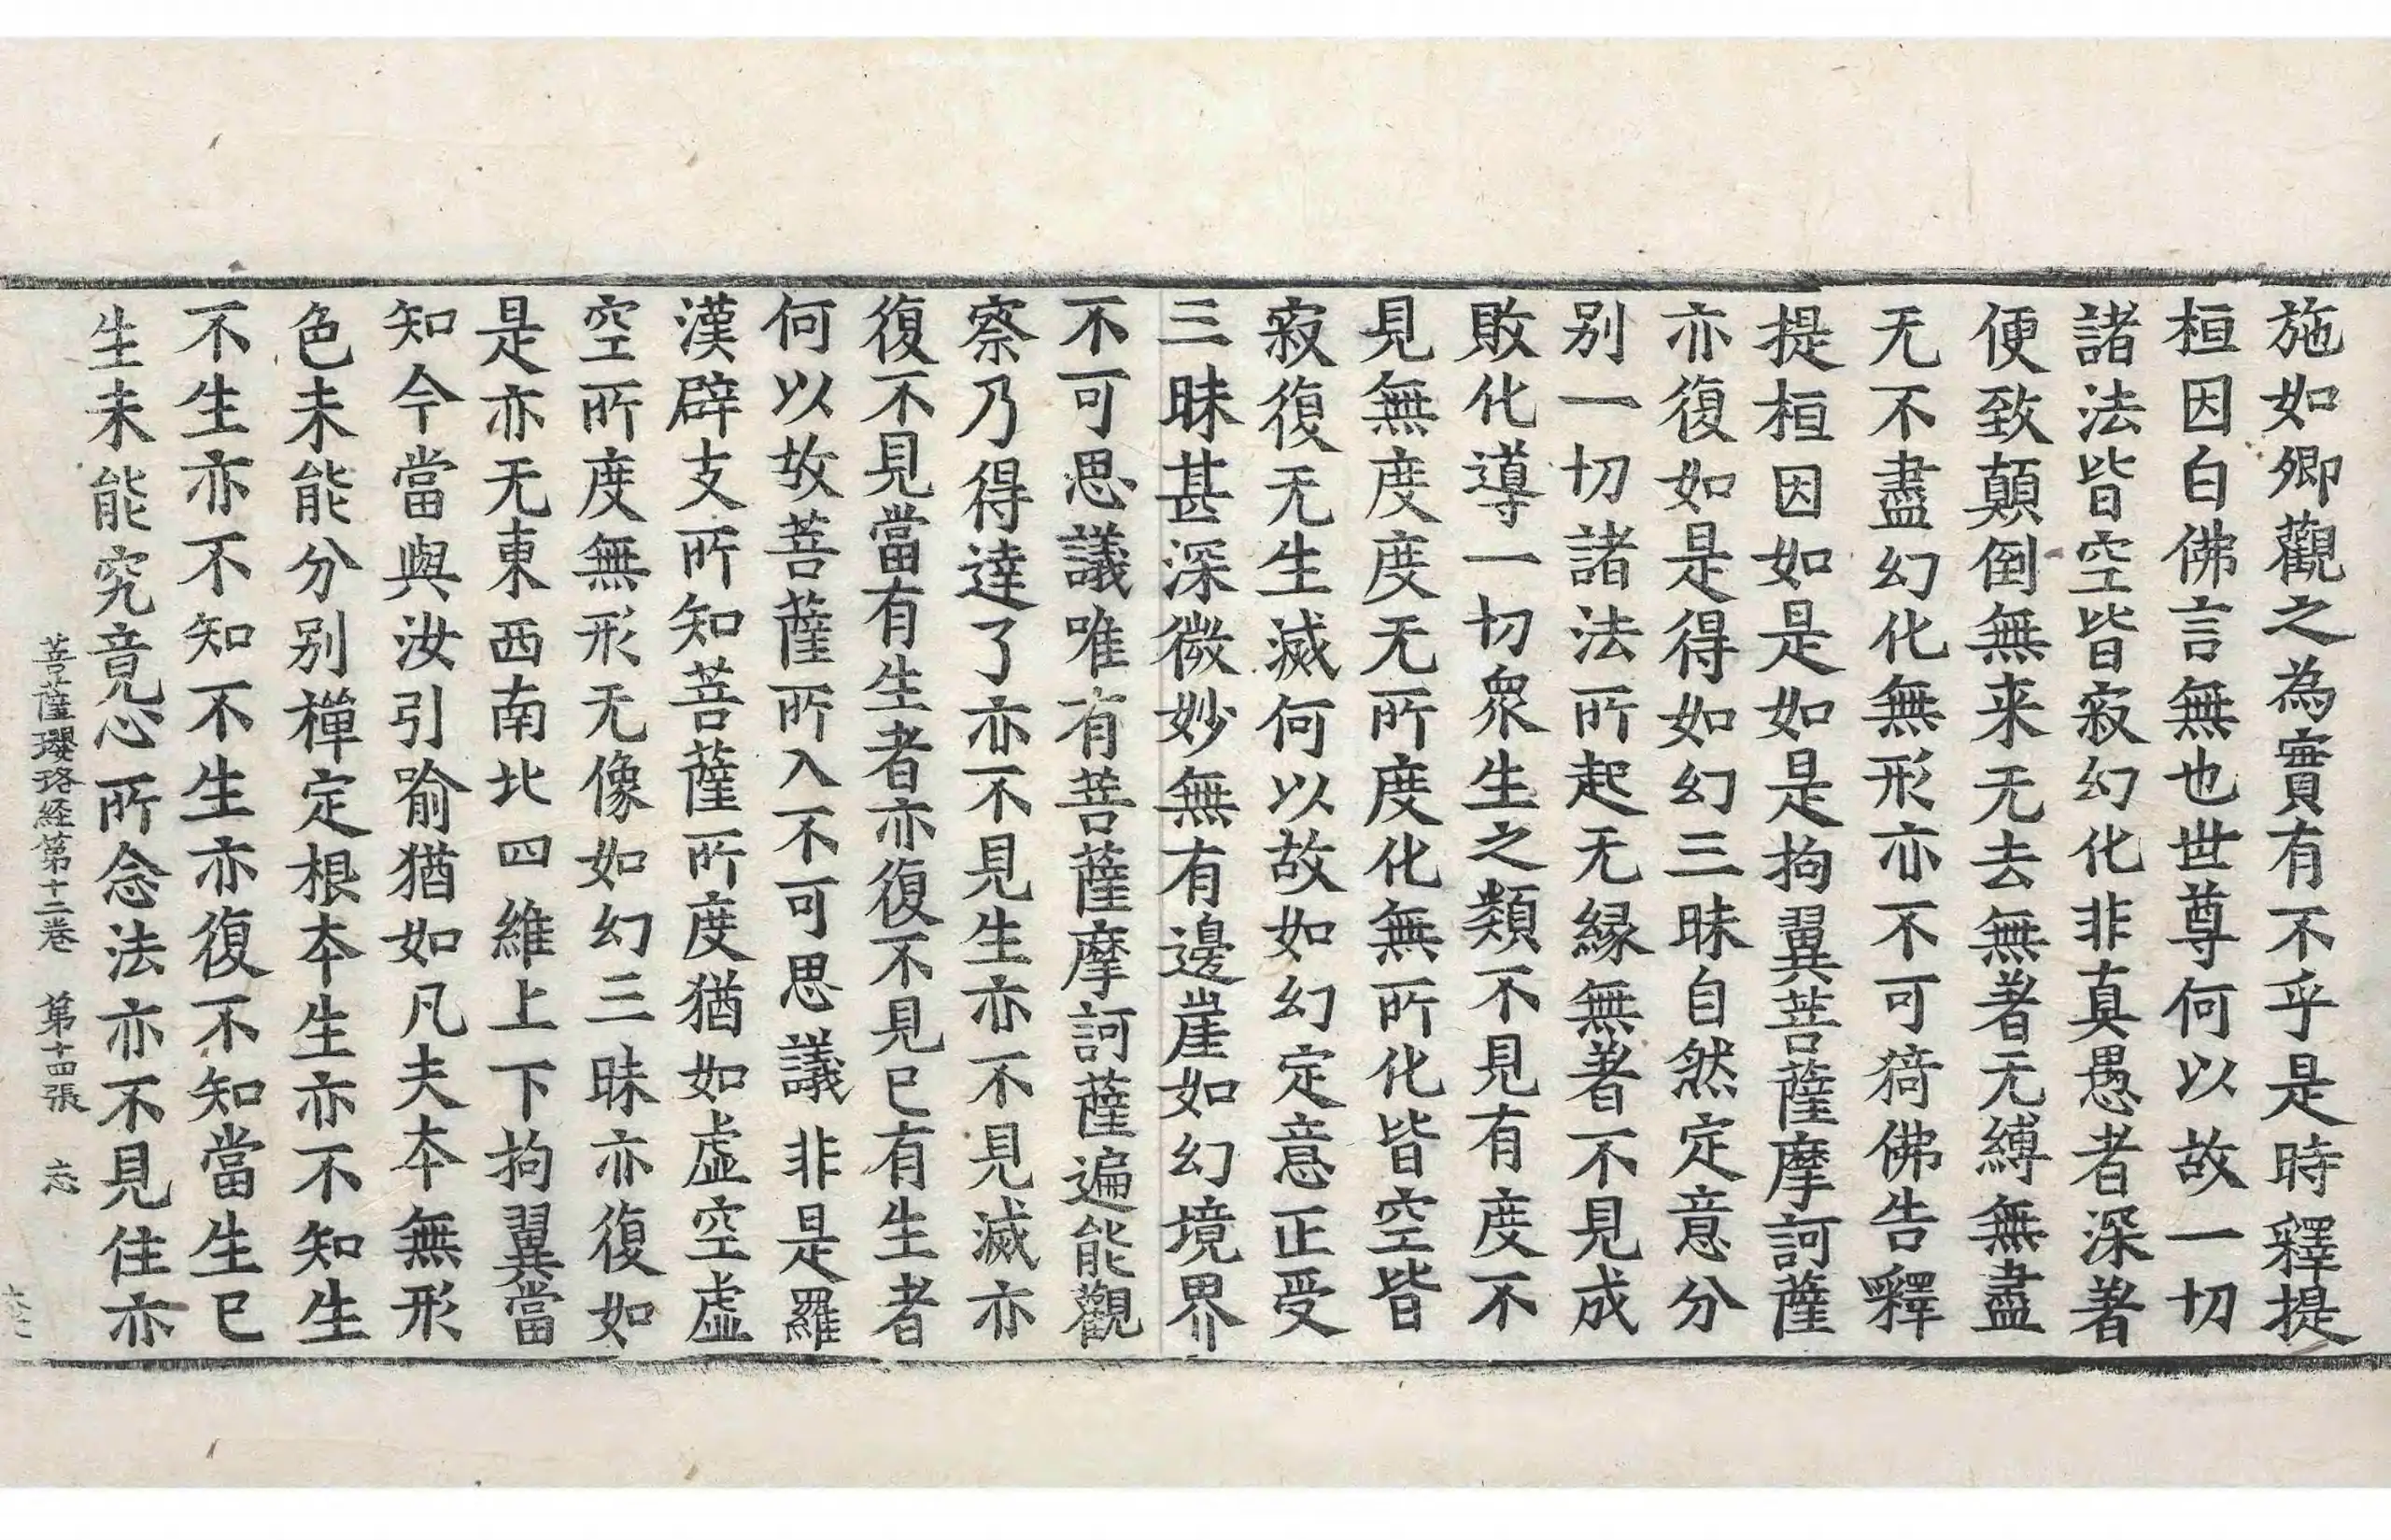 施如卿觀之為實有不乎是時釋提
桓因白佛言無也世尊何以故一切
諸法皆空皆寂幻化非真愚者深著
便致顛倒無来无去無著无縛無盡
无不盡幻化無形亦不可猗佛告釋
提桓因如是如是拘翼菩薩摩訶薩
亦復如是得如幻三昧自然定意分
别一切諸法所起无縁無著不見成
敗化導一切眾生之類不見有度不
見無度度无所度化無所化皆空皆
寂復无生滅何以故如幻定意正受
三昧甚深微妙無有邊崖如幻境界
不可思議唯有菩薩摩訶薩遍能觀
察乃得達了亦不見生亦不見滅亦
復不見當有生者亦復不見已有生者
何以故菩薩所入不可思議非是羅
漢辟支所知菩薩所度猶如虛空虛
空所度無形无像如幻三昧亦復如
是亦无東西南北四維上下拘翼當
知今當與汝引喻猶如凡夫夲無形
色未能分别禪定根夲生亦不知生
不生亦不知不生亦復不知當生已
生未能究竟心所念法亦不見住亦
菩薩瓔珞経第十二卷 第十四張 忘